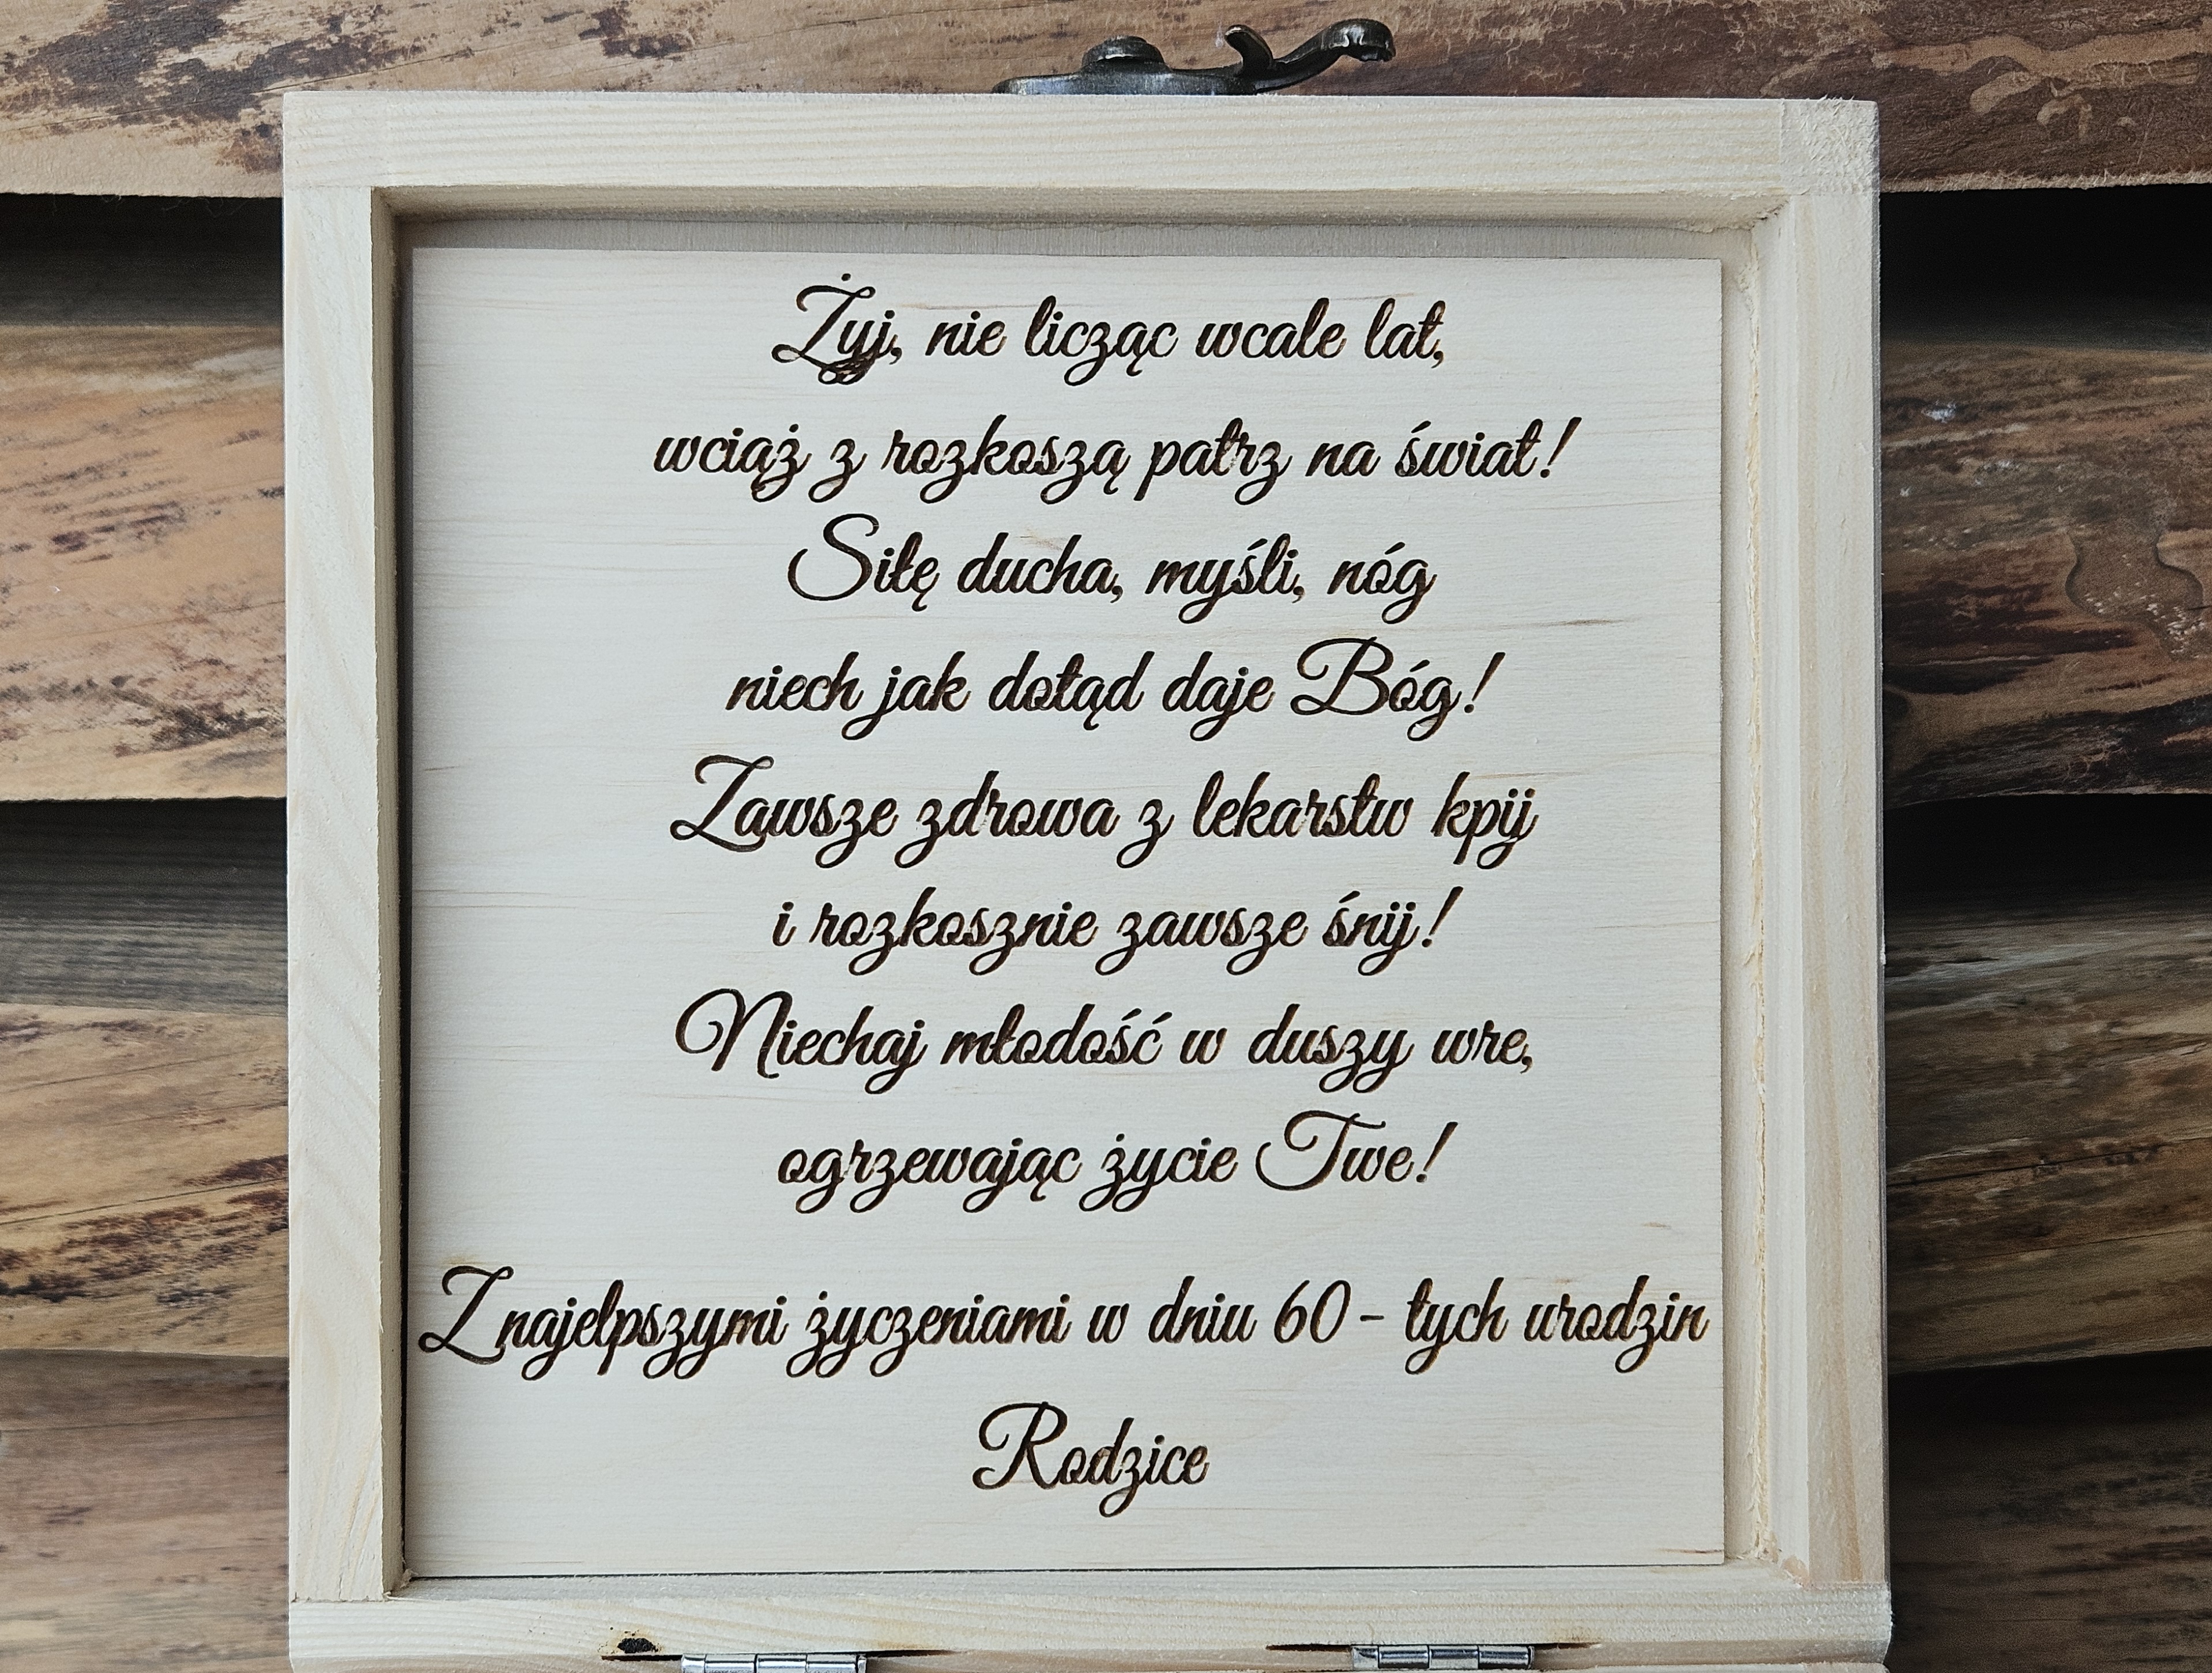 Żyj, nie licząc wcale lat,
wciąż z rozkoszą patrz na świat!
Siłę ducha, myśli, nóg
niech jak dotąd daje Bóg!
Zawsze zdrowa z lekarstw kpij
i rozkosznie zawsze śnij!
Niechaj młodość w duszy wre,
ogrzewając życie Twe!
Z najelpszymi życzeniami w dniu 60 - tych urodzin
Rodzice